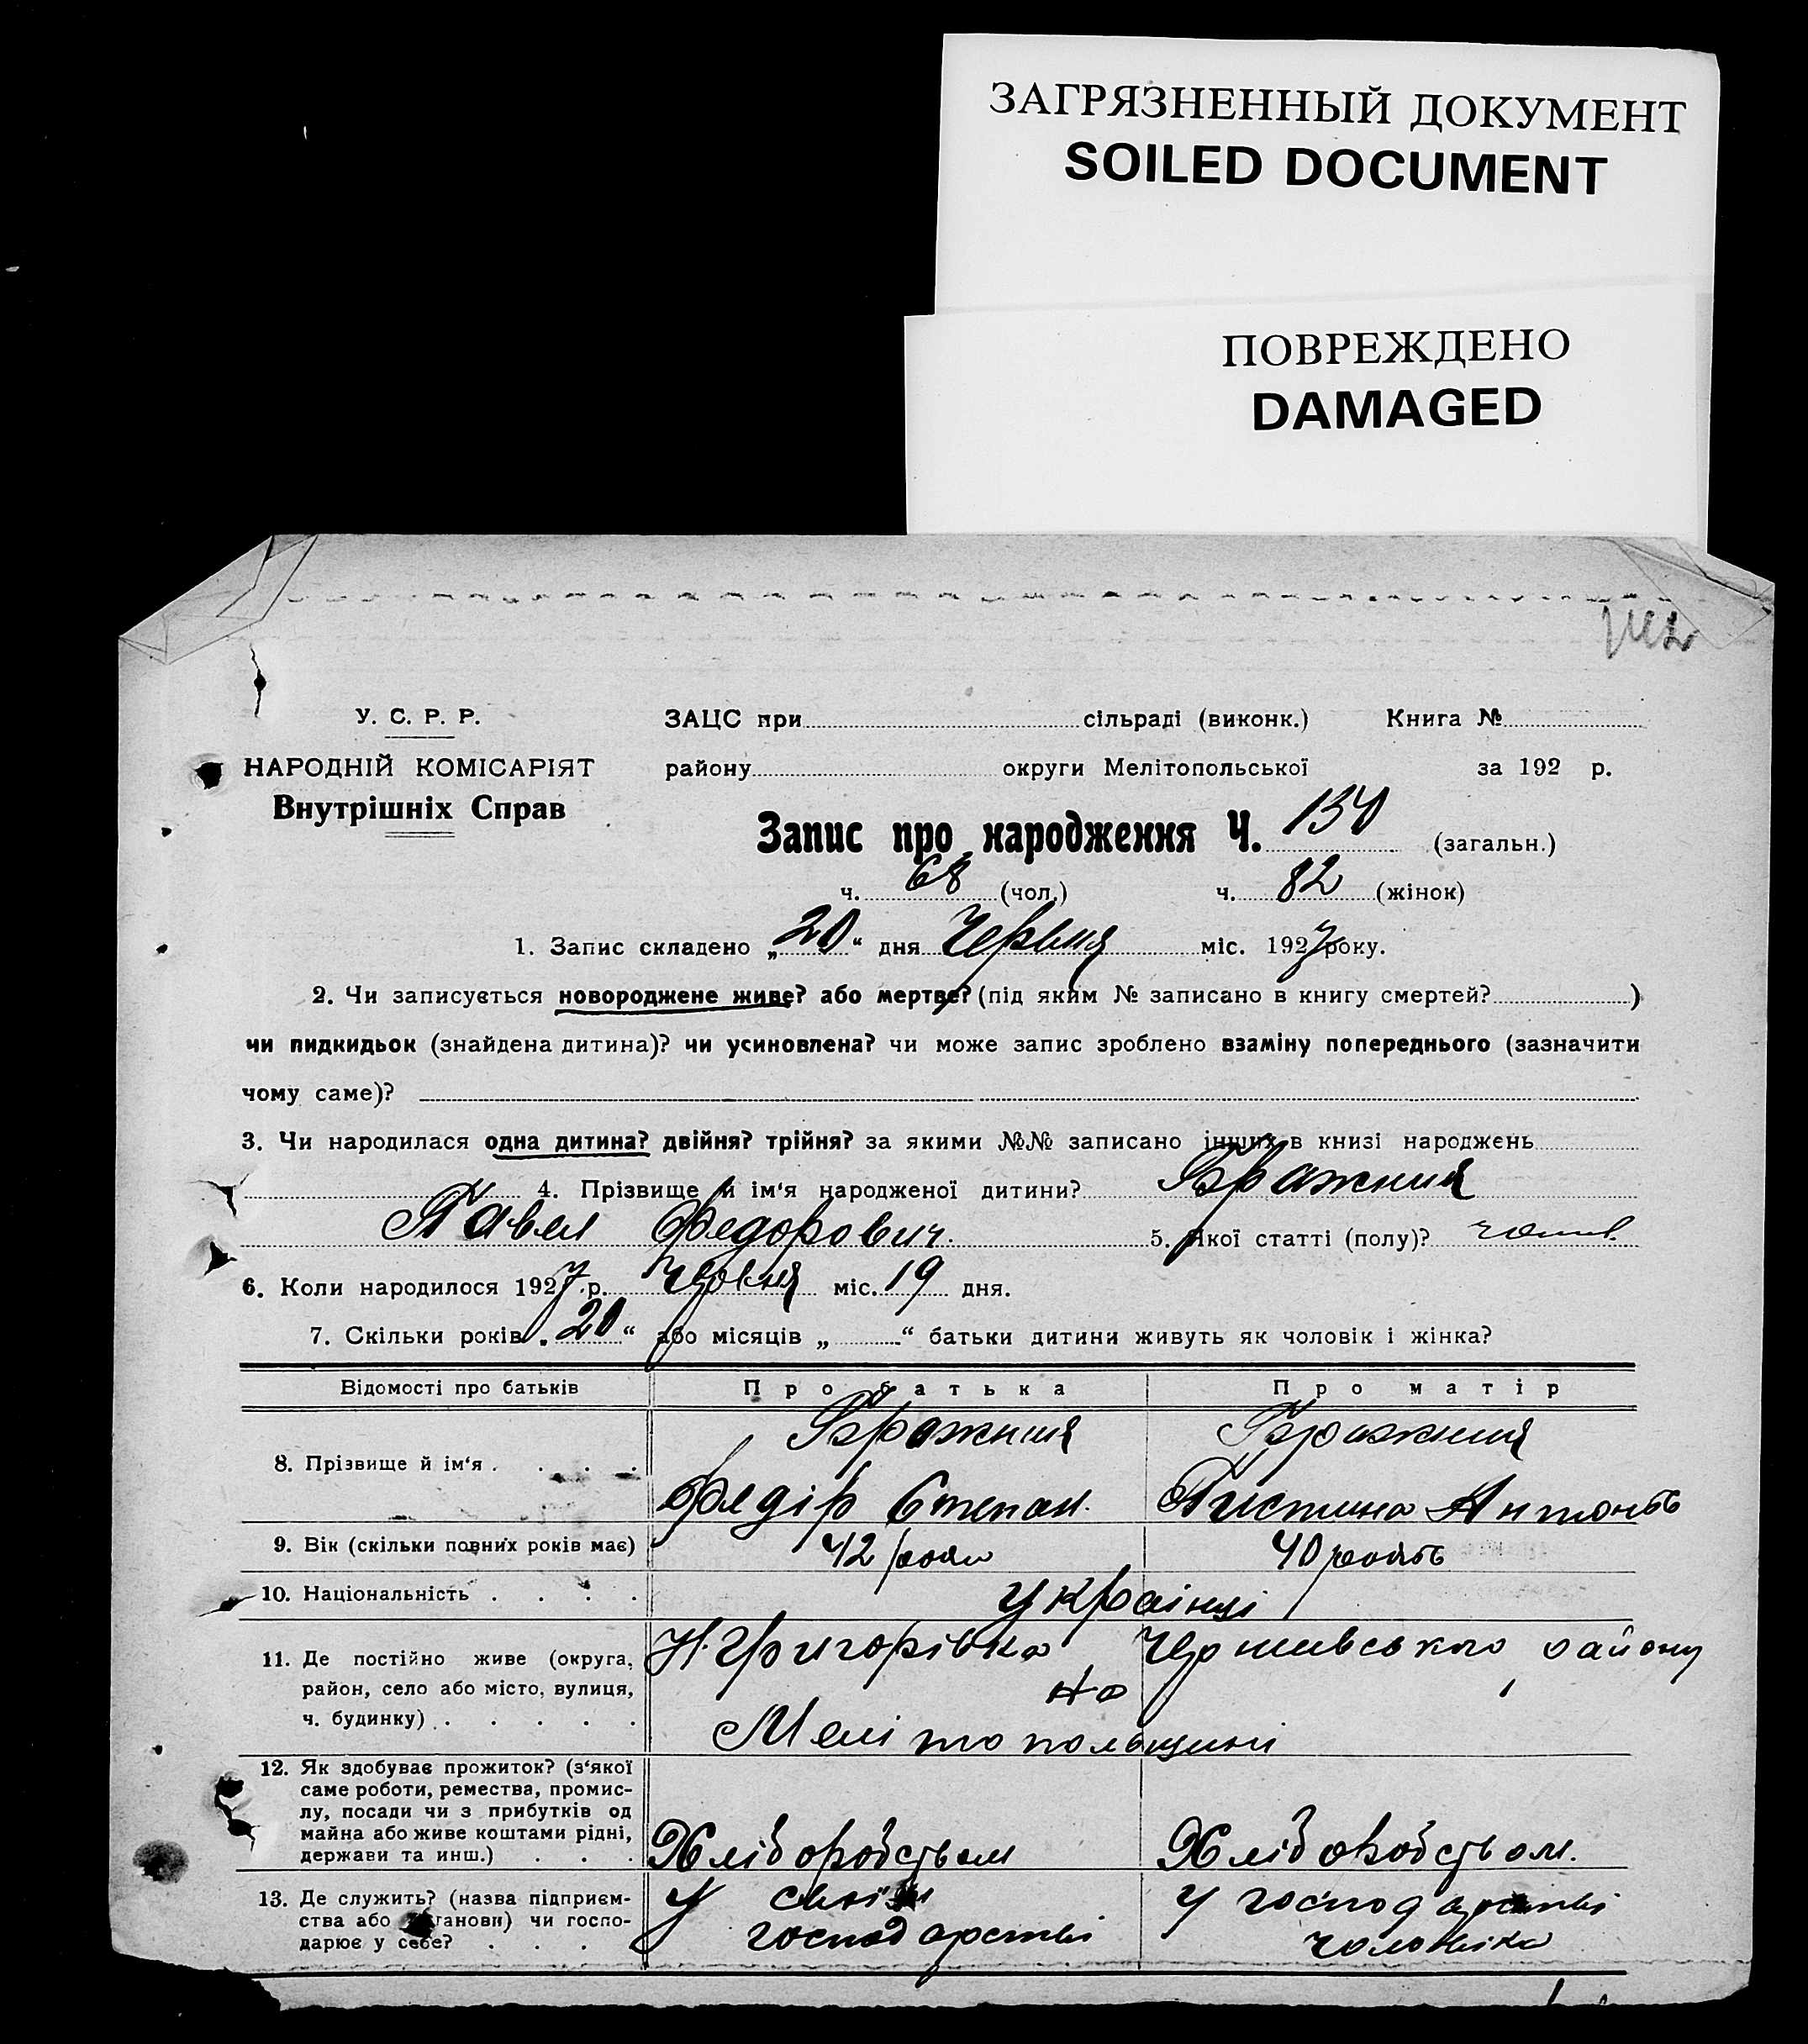 ЗАГРЯЗНЕННЫЙ ДОКУМЕНТ
SOILED DOCUMENT
ПОВРЕЖДЕНО
DAMAGED
У. С. Р. Р.
НАРОДНІЙ КОМІСАРІЯТ
Внутрішніх Справ
ЗАЦС при сільраді (виконк.) Книга №
району округи Мелітопольської за 192 р.
Запис про народження Ч. 150 (загальн.)
ч. 68 (чол.) ч. 82 (жінок)
1. Запис складено „20“ дня Червня міс. 1927 року.
2. Чи записується новороджене живе? або мертве? (під яким № записано в книгу смертей? )
чи пидкидьок (знайдена дитина)? чи усиновлена? чи може запис зроблено взаміну попереднього (зазначити
чому саме)?
3. Чи народилася одна дитина? двійня? трійня? за якими №№ записано інших в книзі народжень
4. Прізвище й ім‘я народженої дитини? Бражния
Павел Федорович. 5. Якої статті (полу)?
6. Коли народилося 1927 р. Червня міс. 19 дня.
7. Скільки років „20“ або місяців „ “ батьки дитини живуть як чоловік і жінка?
Відомості про батьків Про батька Про матір
8. Прізвище й ім‘я . . . . Бражния Бражния
Федір Степан. Тистина Антонів
9. Вік (скільки повних років має) 42 роки 40 років
10. Національність . . . . Українці
11. Де постійно живе (округа, район, село або місто, вулиця, ч. будинку) . . . . . Н. Григорівка району
на
Мелітопольщині
12. Як здобуває прожиток? (з‘якої
саме роботи, ремества, промис-
лу, посади чи з прибутків од
майна або живе коштами рідні,
держави та инш.) . . . Хліборобством Хліборобством.
13. Де служить? (назва підприєм-
ства або установи) чи госпо-
дарює у себе? . . . . У своїм господарстві У господарстві чоловіка